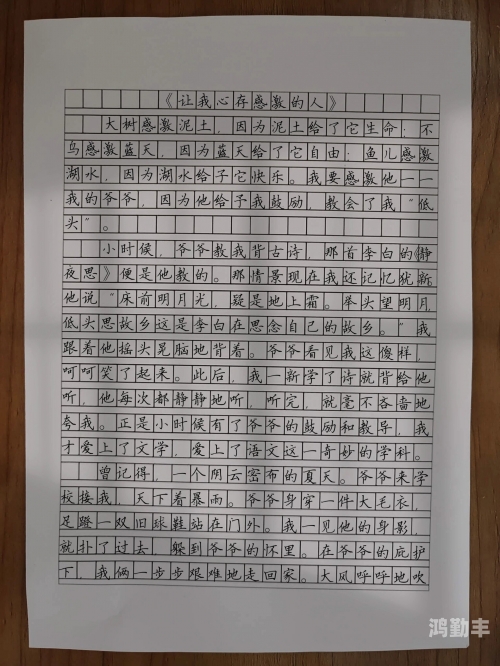 《让我心存感激的人》
大树感激泥土，因为泥土给了它生命；不
鸟感激蓝天，因为蓝天给了它自由；鱼儿感激
湖水，因为湖水给予它快乐。我要感激他一一
我的爷爷，因为他给予我鼓励，教会了我“低
头”。
小时候，爷爷教我背古诗，那首李白的《静
夜思》便是他教的。那情景现在我还记忆犹新
他说“床前明月光，疑是地上霜。举头望明月
低头思故乡这是李白在思念自己的故乡。”我
跟着他摇头晃脑地背着。爷爷看见我这傻样，
呵呵笑了起来。此后，我一新学了诗就背给他
听，他每次都静静地听，听完，就毫不吝啬地
夸我。正是小时候有了爷爷的鼓励和教导，我
才爱上了文学，爱上了语文这一奇妙的学科。
曾记得，一个阴云密布的夏天。爷爷来学
校接我，天下着暴雨。爷爷身穿一件大毛衣，
足蹬一双旧球鞋站在门外。我一见他的身影，
就扑了过去，躲到爷爷的怀里。在爷爷的庇护
下，我俩一步步艰难地走回家。大风呼呼地吹
鸿勤丰